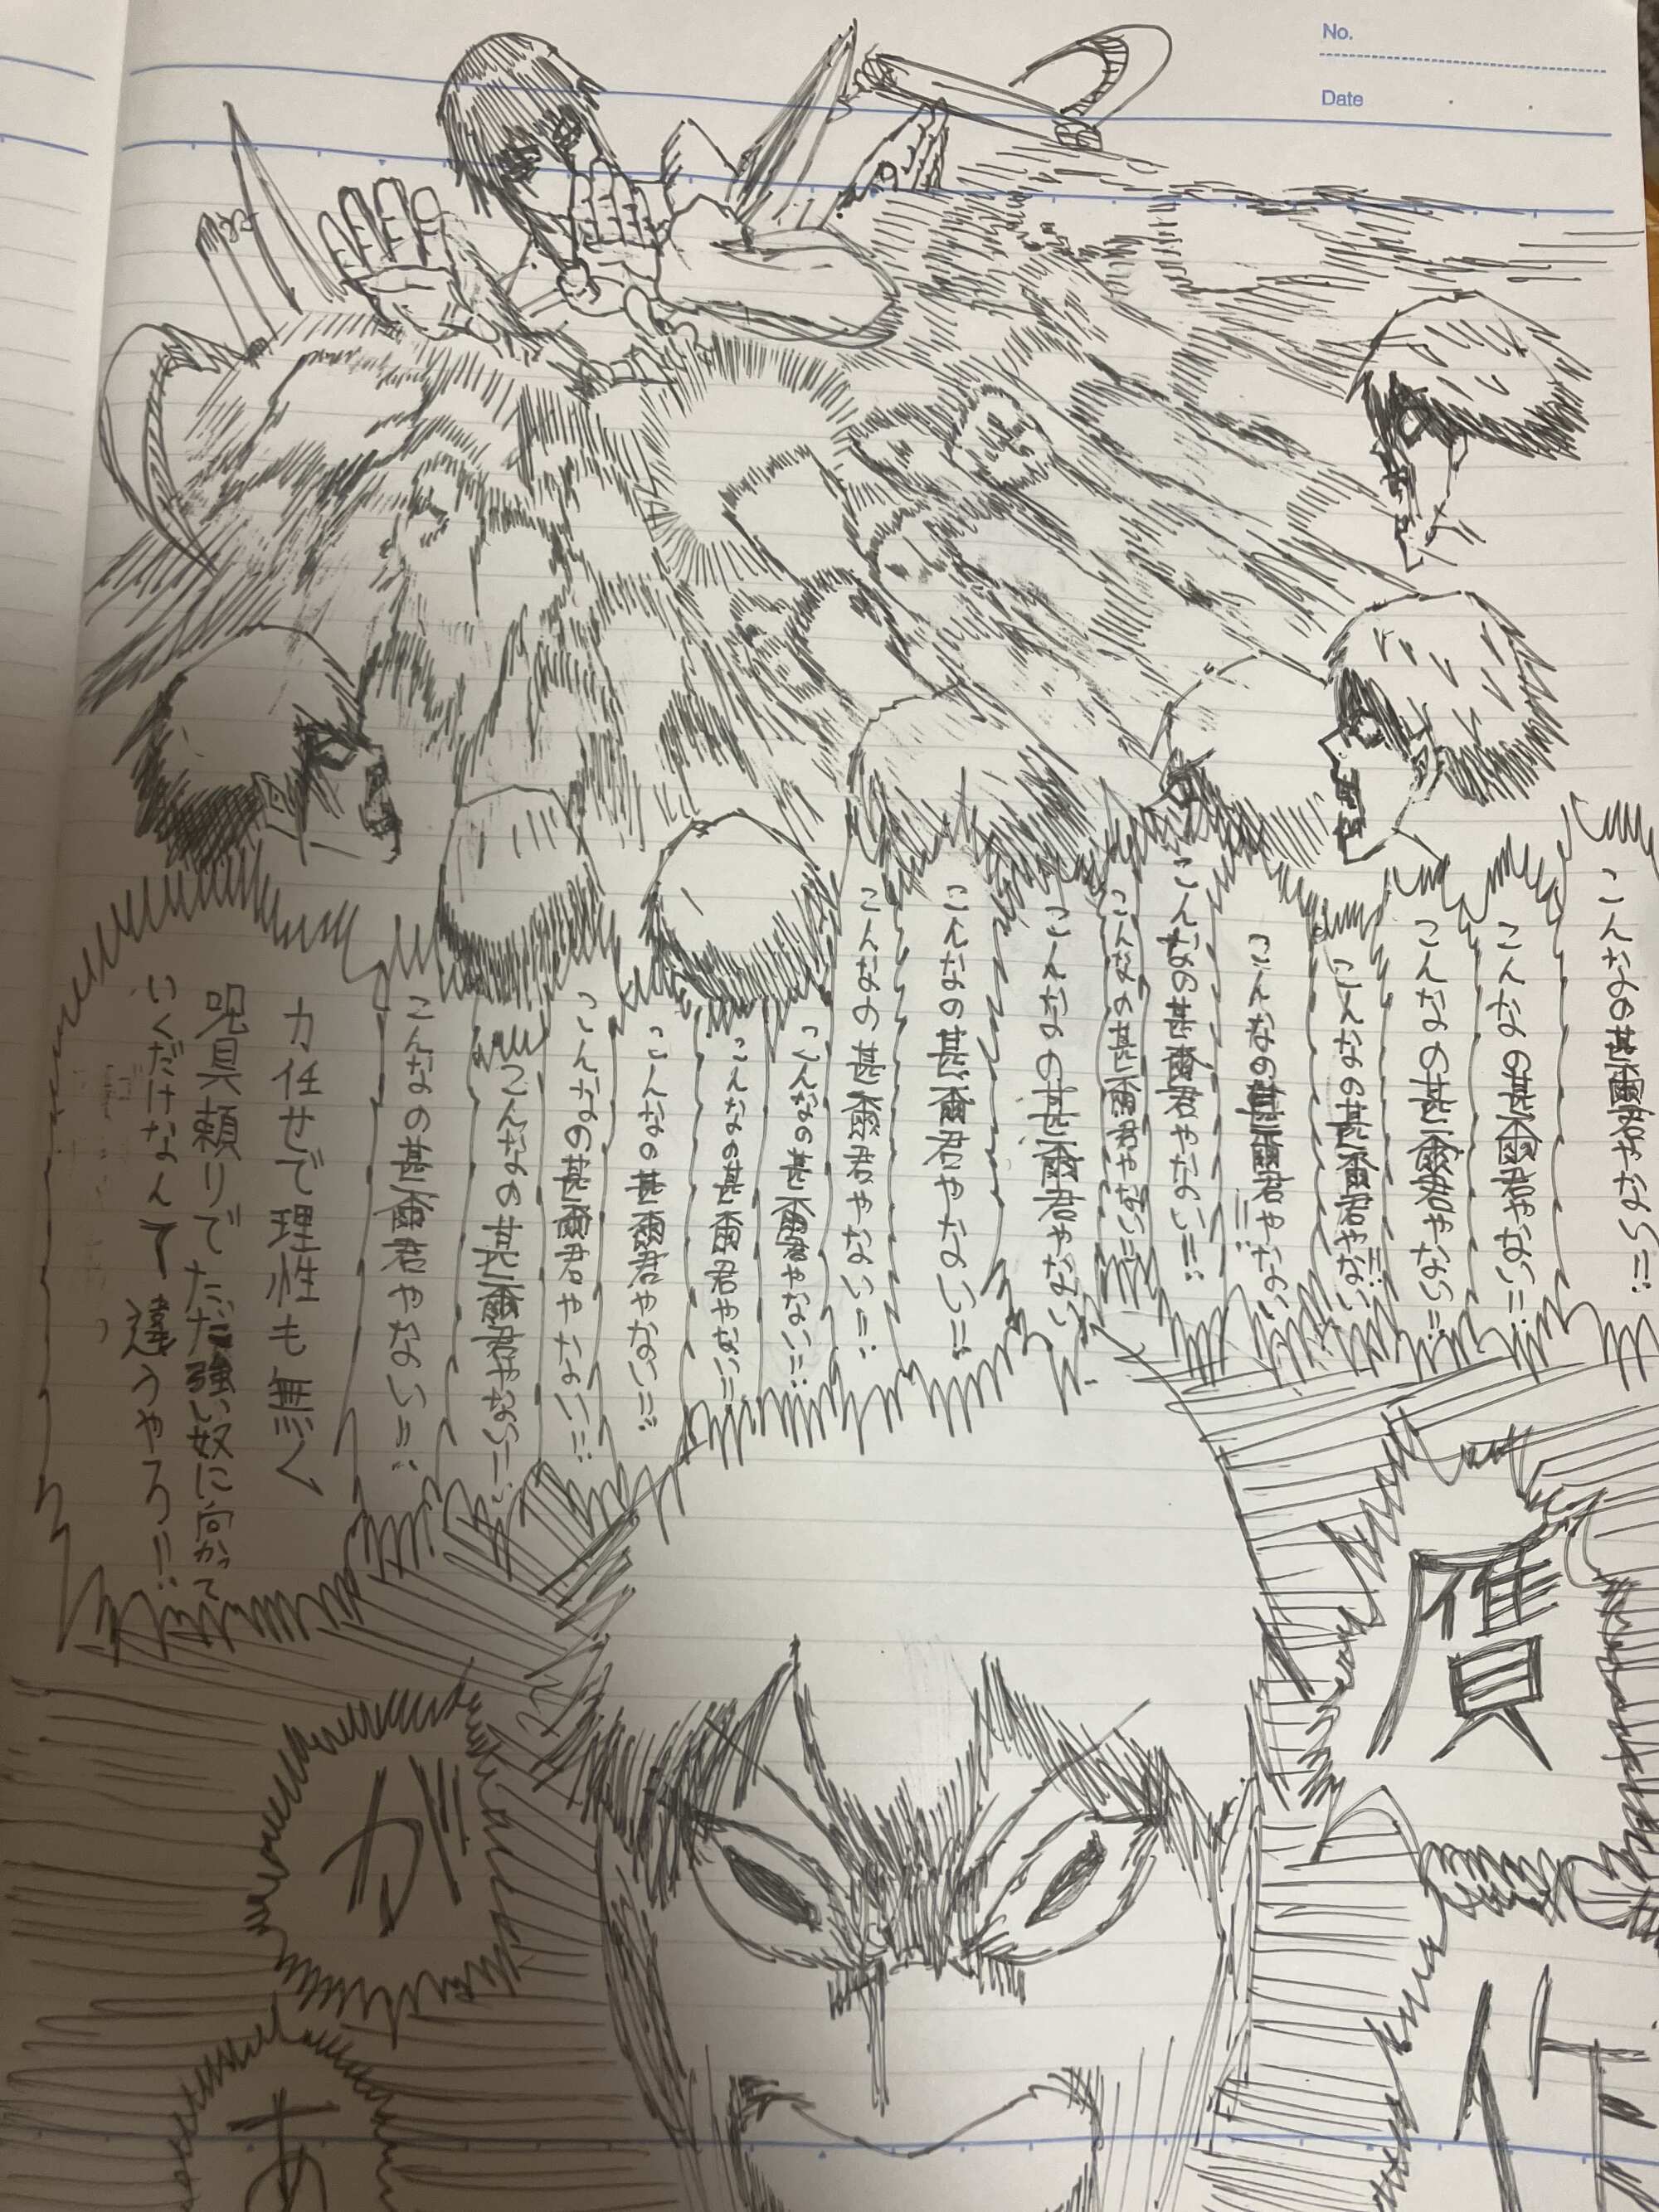 No.
Date
こんなの甚爾君やない!!
こんなの甚爾君やない!!
こんなの甚爾君やない!!
こんなの甚爾君やない!!
こんなの甚爾君やない!!
こんなの甚爾君やない!!
こんなの甚爾君やない!!
こんなの甚爾君やない
こんなの甚爾君やない!!
こんなの甚爾君やない!!
こんなの甚爾君やない!!
こんなの甚爾君やない!!
こんなの甚爾君やない!!
こんなの甚爾君やない!!
こんなの甚爾君やない!!
こんなの甚爾君やない!!
力任せで理性も無く
呪具頼りでただ強い奴に向かって
いくだけなんて違うやろ!!
贋
作
が
あ